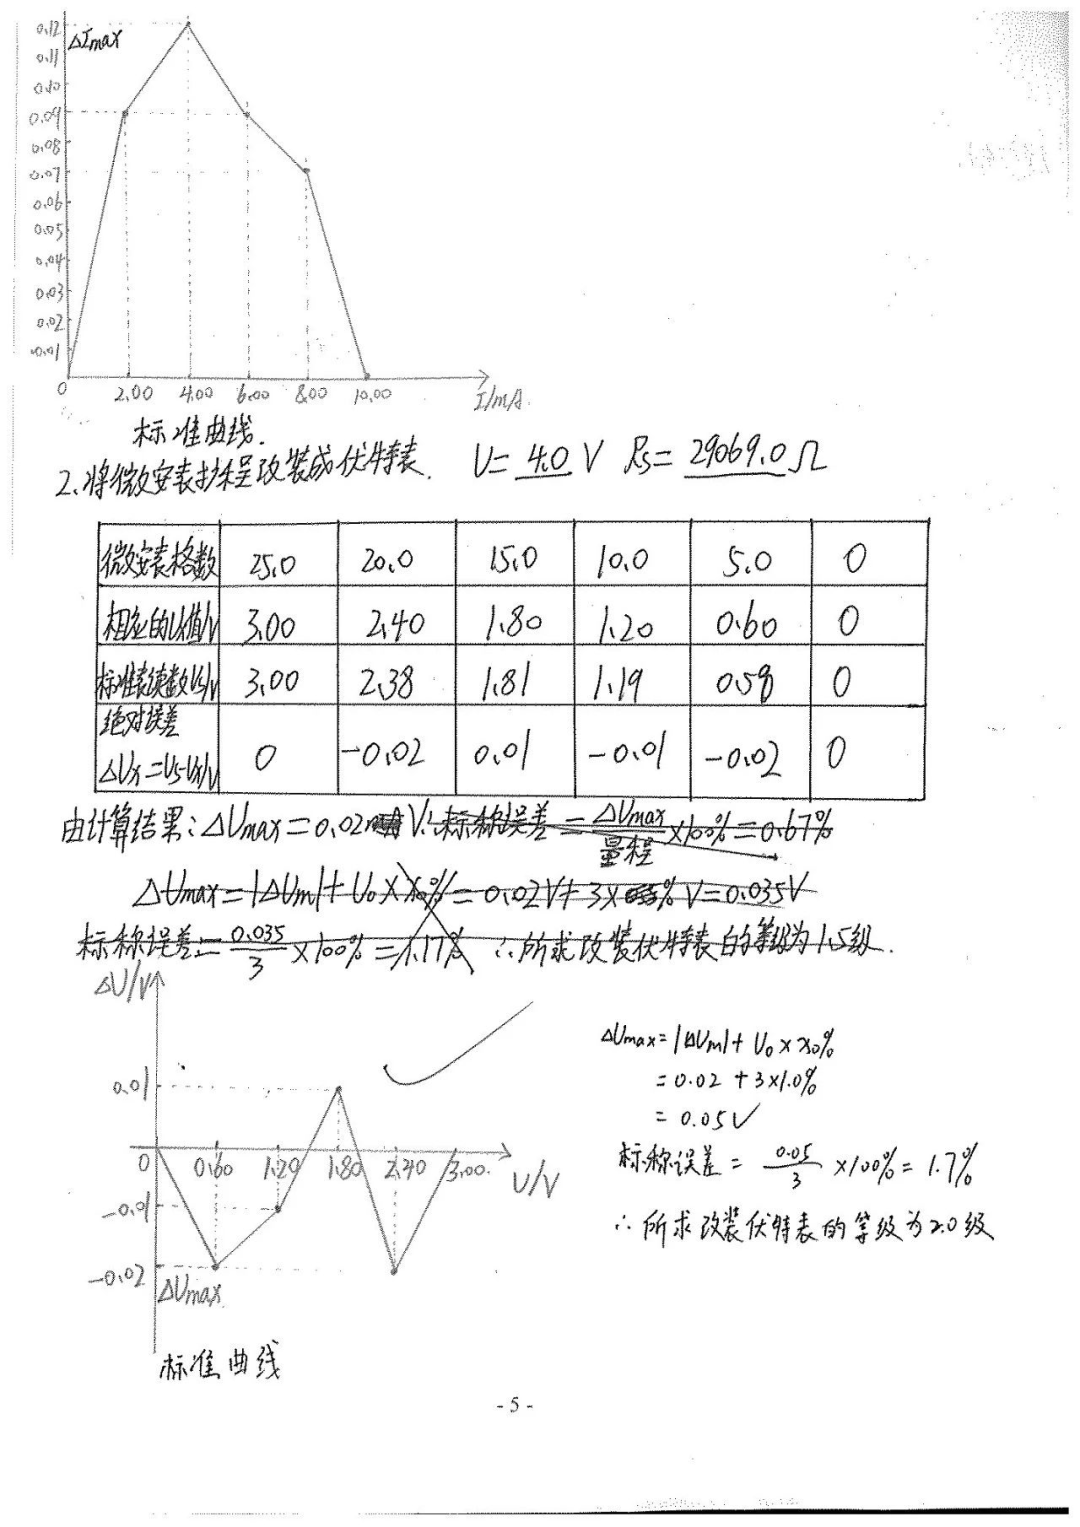 0.12
ΔImax
0.11
0.10
0.09
0.08
0.07
0.06
0.05
0.04
0.03
0.02
0.01
0 2.00 4.00 6.00 8.00 10.00 I/mA
标准曲线.
2.将微安表扩程改装成伏特表. U= 4.0 V Rs= 29069.0 Ω
微安表格数 25.0 20.0 15.0 10.0 5.0 0
相应的U值/V 3.00 2.40 1.80 1.20 0.60 0
标准表读数Us/V 3.00 2.38 1.81 1.19 0.58 0
绝对误差
ΔUx=Us-Ux/V 0 -0.02 0.01 -0.01 -0.02 0
由计算结果:ΔUmax=0.02 V∴标称误差=ΔUmax/量程×100%=0.67%
ΔUmax=|ΔUm|+U₀×x₀%=0.02V+3× %V=0.035V
标称误差=0.035/3×100%=1.17% ∴所求改装伏特表的等级为1.5级.
ΔU/V
0.01
0 0.60 1.20 1.80 2.40 3.00 U/V
-0.01
-0.02
ΔUmax
标准曲线
ΔUmax=|ΔUm|+U₀×x₀%
=0.02+3×1.0%
=0.05V
标称误差=0.05/3×100%=1.7%
∴所求改装伏特表的等级为2.0级
- 5 -